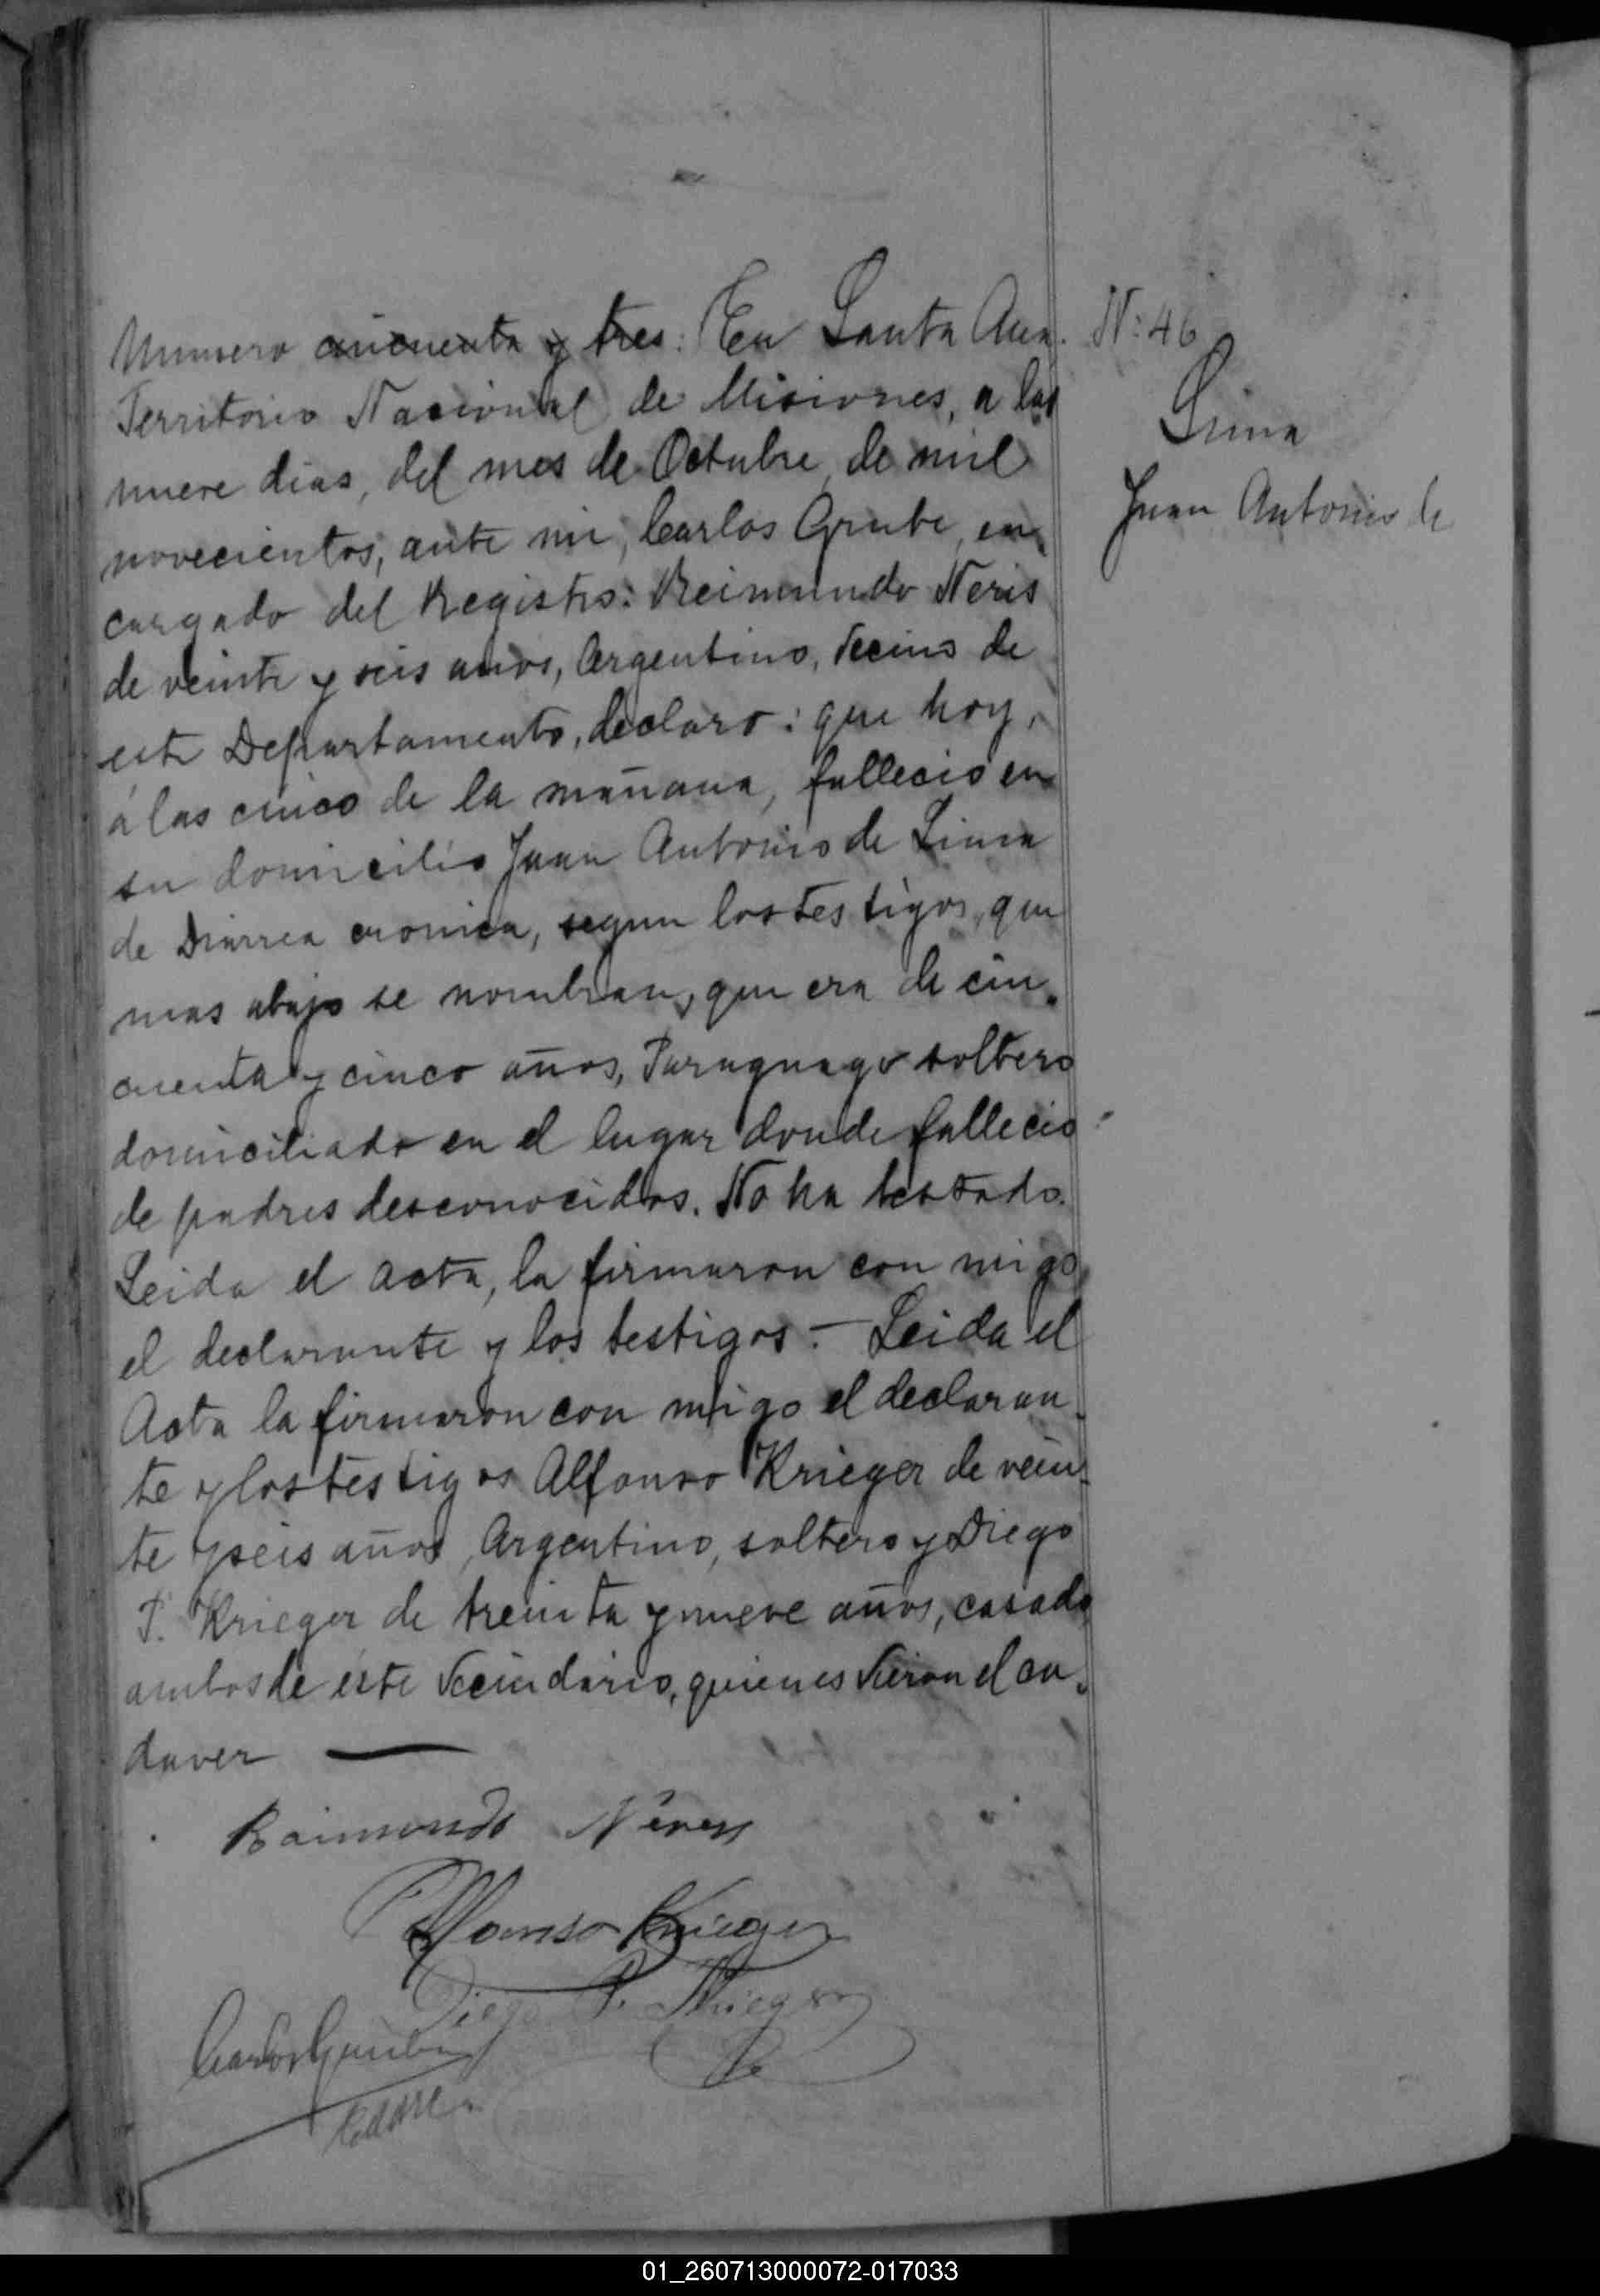 Numero cincuenta y tres: En Santa Ana.
Territorio Nacional de Misiones, a los
nueve dias, del mes de Octubre de mil
novecientos, ante mi, Carlos Grube, en
cargado del Registro: Reimundo Neris
de veinte y seis años, Argentino, Vecino de
este Departamento, declaro: que hoy,
á las cinco de la mañana, fallecio en
su domicilio Juan Antonio de Lima
de Diarrea cronica, segun los testigos, que
mas abajo se nombran, que era de cin
cuenta y cinco años, Paraguayo soltero
domiciliado en el lugar donde fallecio
de padres desconocidos. No ha testado.
Leida el acta, la firmaron con migo
el declarante y los testigos. — Leida el
Acta la firmaron con migo el declaran
te y los testigos Alfonso Krieger de vein
te y seis años, Argentino, soltero y Diego
P. Krieger de treinta y nueve años, casado
ambos de este Vecindario, quienes Vieron el ca
daver —
Raimundo Neves
Alfonso Krieger
Diego P. Krieger
Carlos Grube
N: 46
Lima
Juan Antonio de
01_260713000072-017033